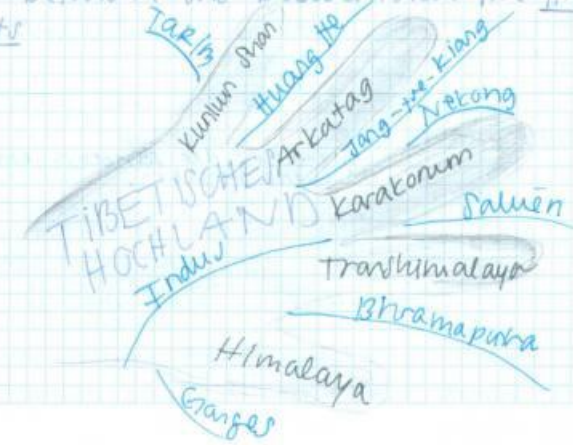 ts
Tarim
Kunlun Shan
Huang He
Arkatag
Jang-tse-Kiang
Mekong
TIBETISCHES
HOCHLAND
Karakorum
Saluen
Indus
Transhimalaya
Bhramaputra
Himalaya
Ganges